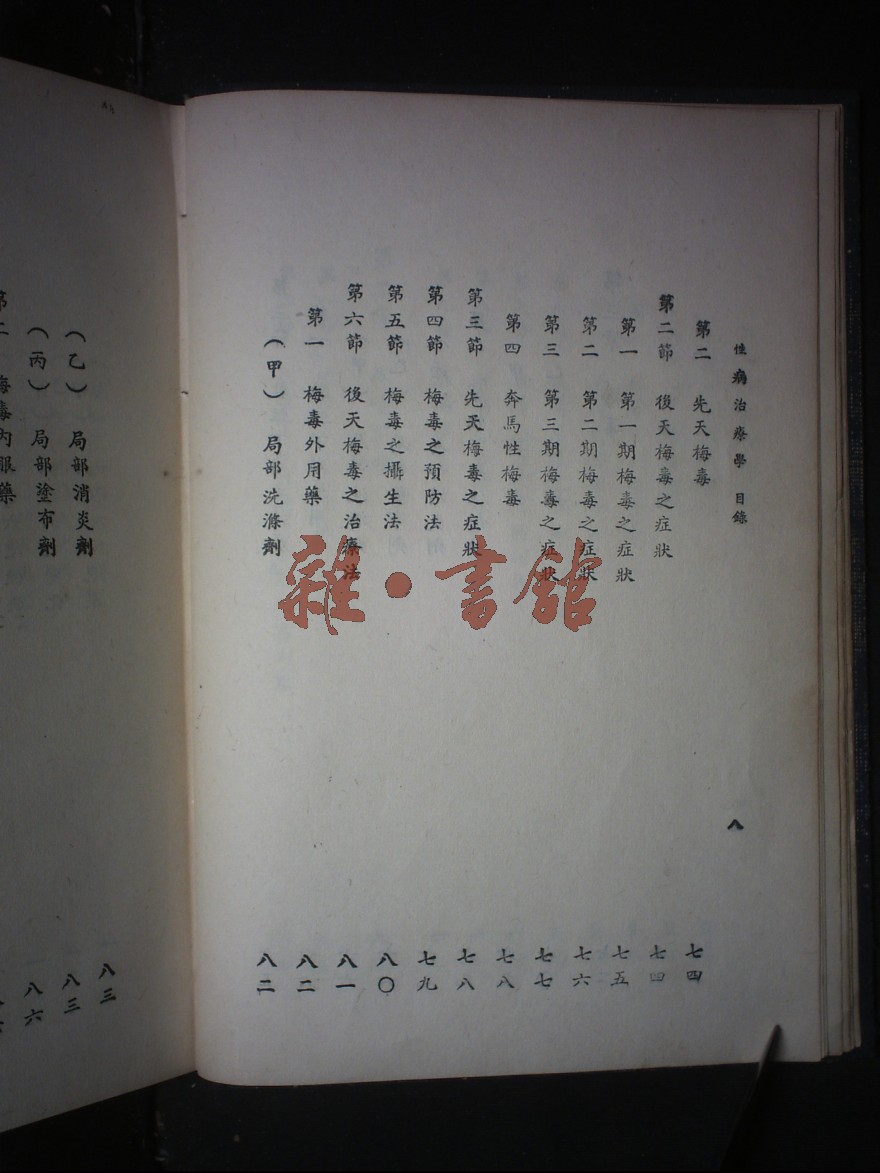 性病治療學 目錄 八
第二 先天梅毒 七四
第二節 後天梅毒之症狀 七四
第一 第一期梅毒之症狀 七五
第二 第二期梅毒之症狀 七六
第三 第三期梅毒之症狀 七七
第四 奔馬性梅毒 七八
第三節 先天梅毒之症狀 七八
第四節 梅毒之預防法 七九
第五節 梅毒之攝生法 八〇
第六節 後天梅毒之治療法 八一
第一 梅毒外用藥 八二
(甲) 局部洗滌劑 八二
雜·書館
八三
(乙) 局部消炎劑 八三
(丙) 局部塗布劑 八六
第二 梅毒內服藥